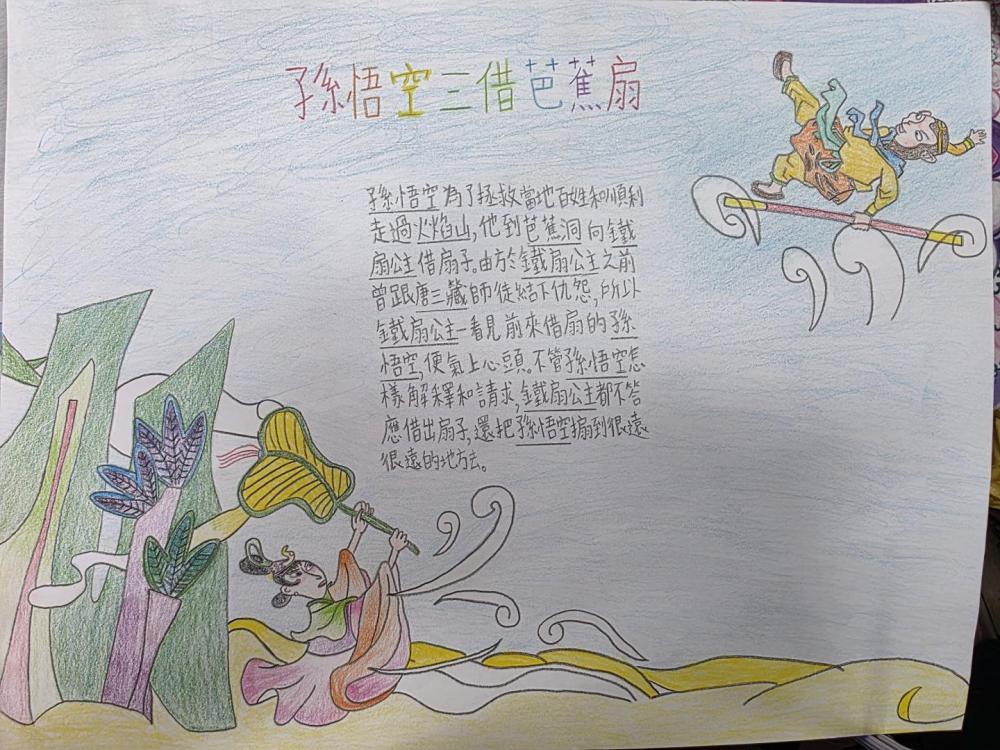 孫悟空三借芭蕉扇
孫悟空為了拯救當地百姓和順利
走過火焰山,他到芭蕉洞向鐵
扇公主借扇子。由於鐵扇公主之前
曾跟唐三藏師徒結下仇怨,所以
鐵扇公主一看見前來借扇的孫
悟空,便氣上心頭。不管孫悟空怎
樣解釋和請求,鐵扇公主都不答
應借出扇子,還把孫悟空搧到很遠
很遠的地方去。